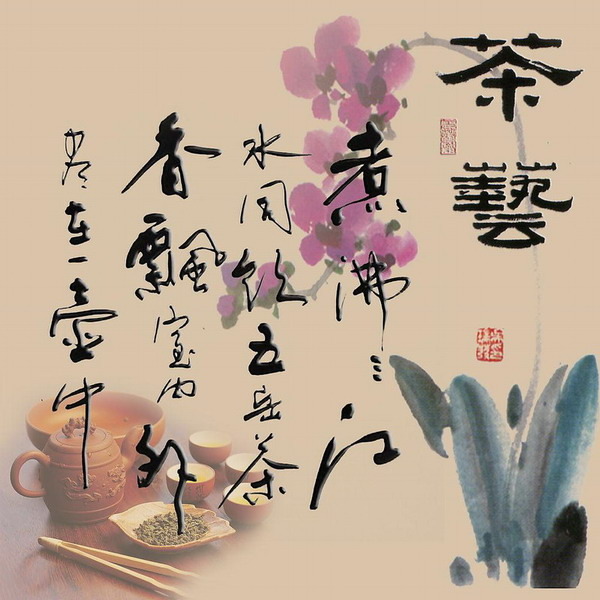 茶藝
煮沸三江
水同饮五岳茶
香飄室内外
尽在一壺中